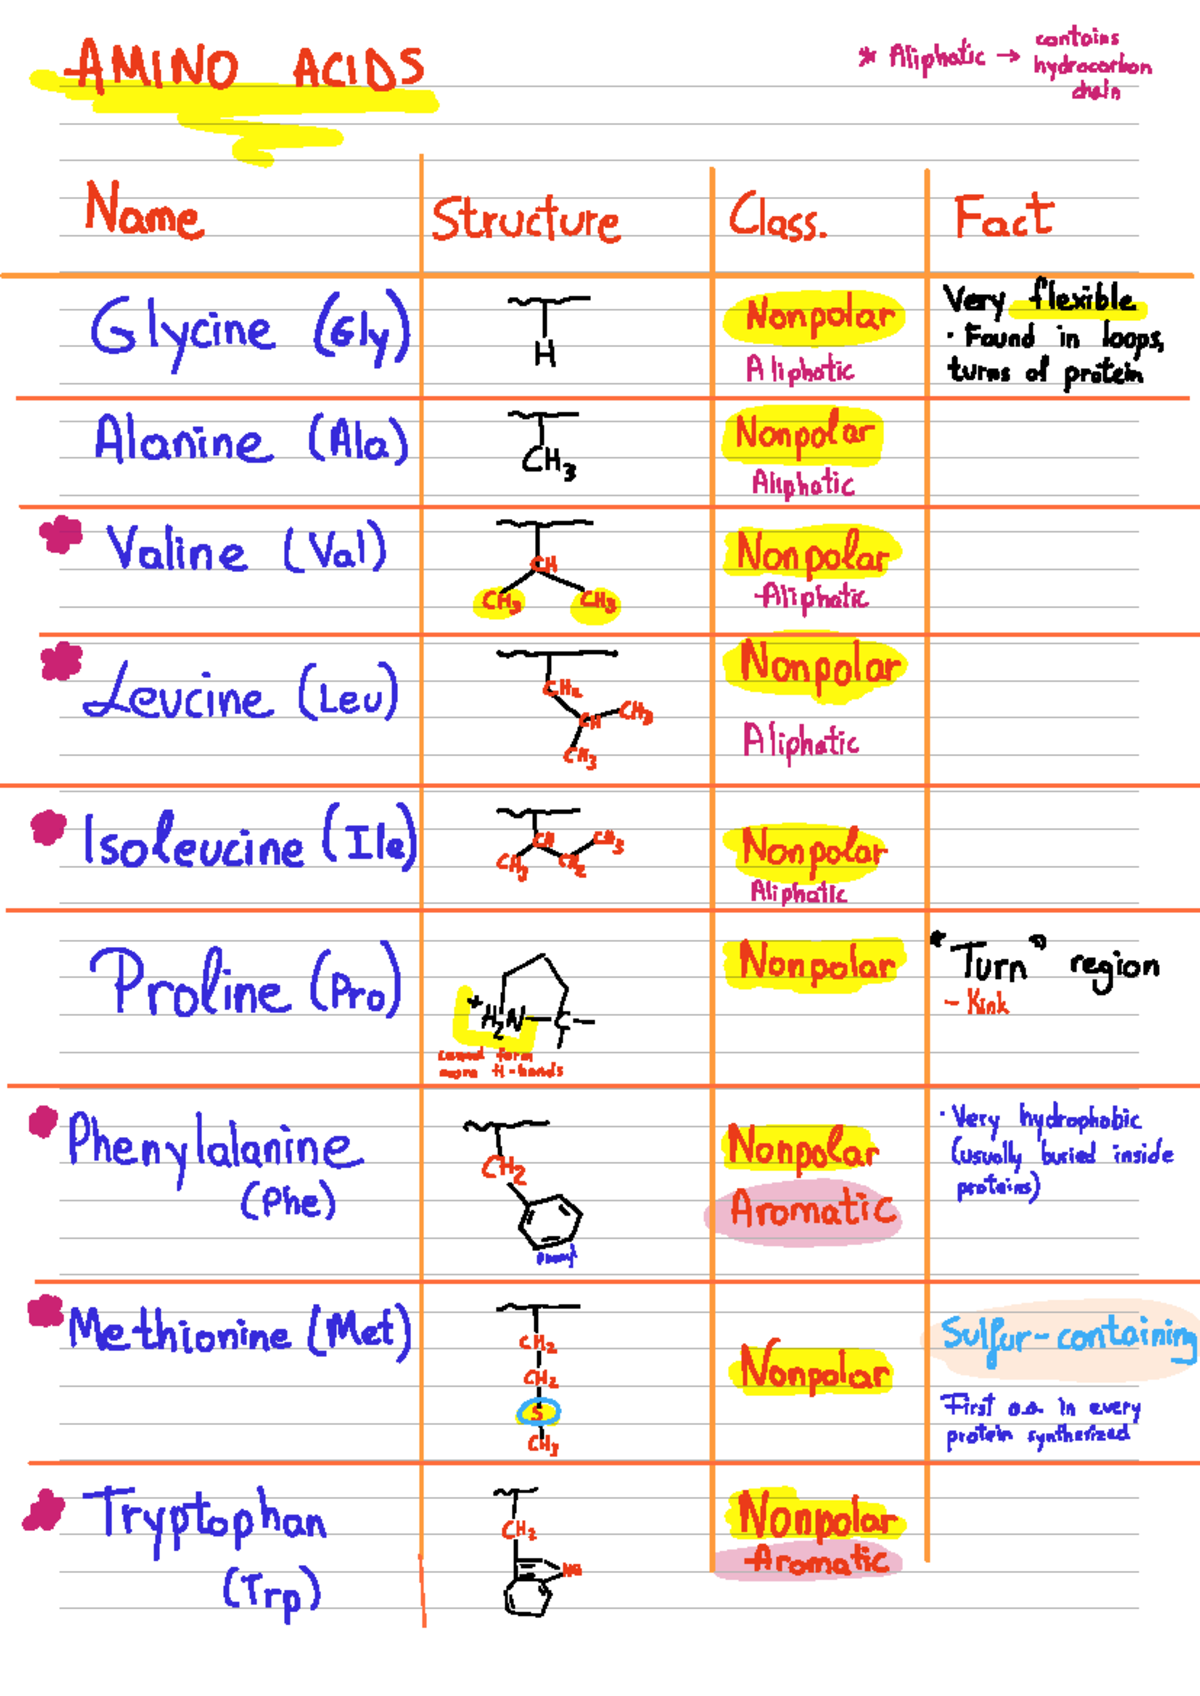 AMINO ACIDS
* Aliphatic → contains
hydrocarbon
chain
Name Structure Class. Fact
Glycine (Gly)
H
Nonpolar
Aliphatic
Very flexible
· Found in loops,
turns of protein
Alanine (Ala)
CH3
Nonpolar
Aliphatic
Valine (Val)
CH
CH3 CH3
Nonpolar
Aliphatic
Leucine (Leu)
CH2
CH CH3
CH3
Nonpolar
Aliphatic
Isoleucine (Ile)
CH CH3
CH3 CH2
Nonpolar
Aliphatic
Proline (Pro)
+H2N C
cannot form
more H-bonds
Nonpolar
"Turn" region
- Kink
Phenylalanine
(Phe)
CH2
phenyl
Nonpolar
Aromatic
· Very hydrophobic
(usually buried inside
proteins)
Methionine (Met)
CH2
CH2
S
CH3
Nonpolar
Sulfur-containing
First a.a. in every
protein synthesized
Tryptophan
(Trp)
CH2
Nonpolar
Aromatic